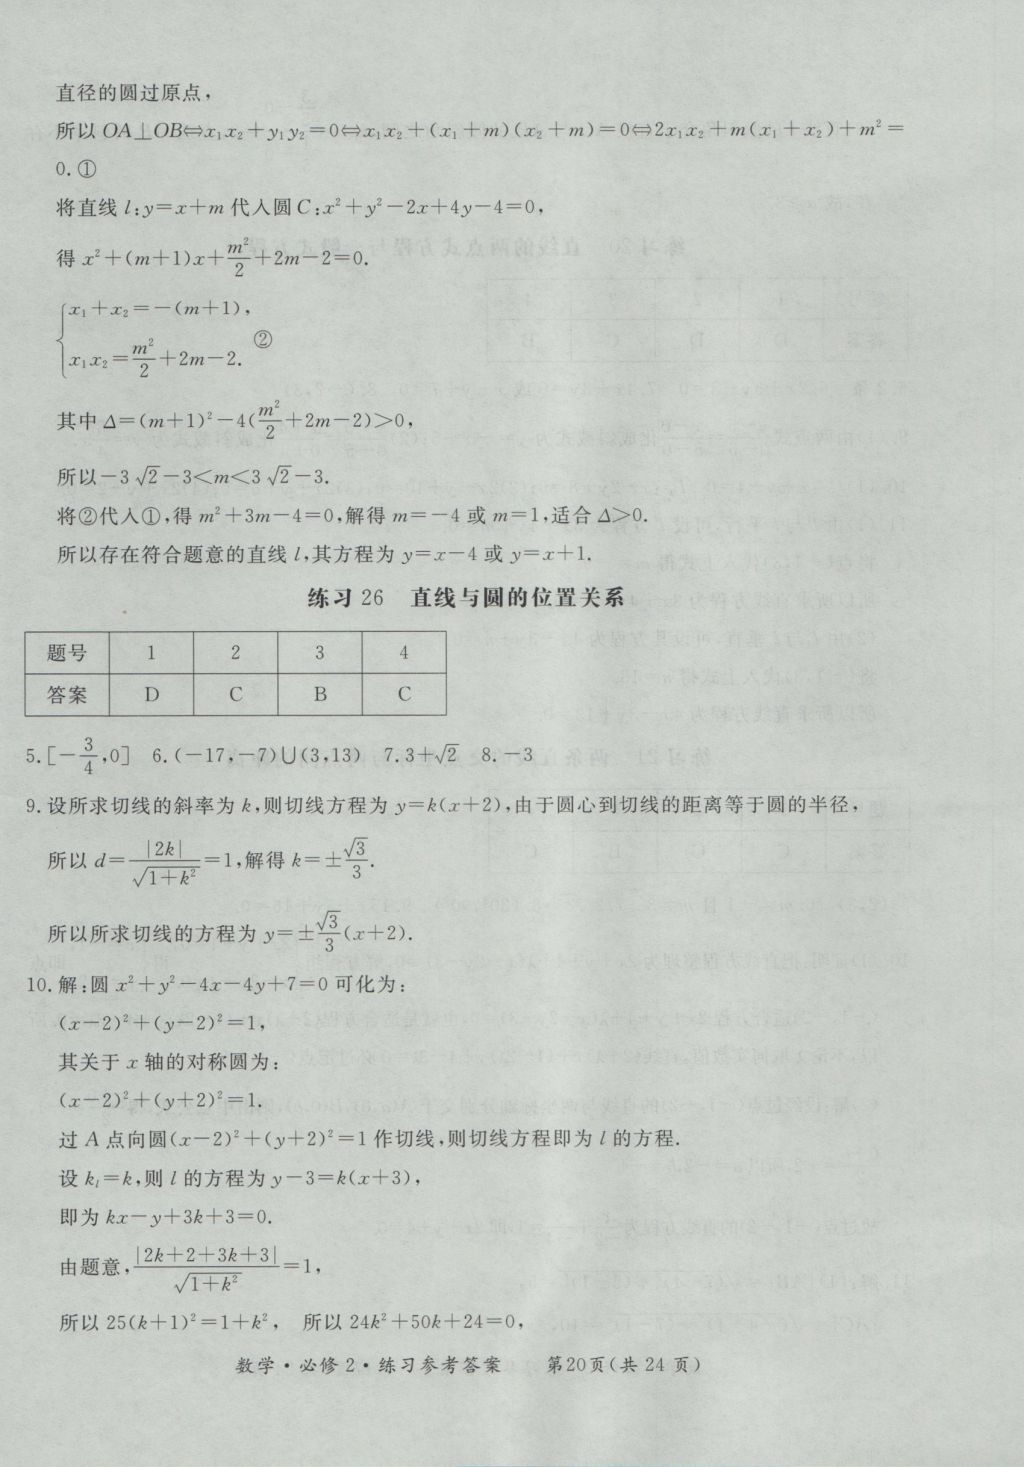 直径的圆过原点，
所以 OA⊥OB⇔x₁x₂+y₁y₂=0⇔x₁x₂+(x₁+m)(x₂+m)=0⇔2x₁x₂+m(x₁+x₂)+m²=
0.①
将直线 l:y=x+m 代入圆 C:x²+y²-2x+4y-4=0，
得 x²+(m+1)x+m²/2+2m-2=0.
{x₁+x₂=-(m+1)，
x₁x₂=m²/2+2m-2. ②
其中 Δ=(m+1)²-4(m²/2+2m-2)>0，
所以-3√2-3<m<3√2-3.
将②代入①,得 m²+3m-4=0,解得 m=-4 或 m=1,适合 Δ>0.
所以存在符合题意的直线 l,其方程为 y=x-4 或 y=x+1.
练习 26 直线与圆的位置关系
题号 1 2 3 4
答案 D C B C
5.[-3/4,0] 6.(-17,-7)∪(3,13) 7.3+√2 8.-3
9.设所求切线的斜率为 k,则切线方程为 y=k(x+2),由于圆心到切线的距离等于圆的半径，
所以 d=|2k|/√(1+k²)=1,解得 k=±√3/3.
所以所求切线的方程为 y=±√3/3(x+2).
10.解:圆 x²+y²-4x-4y+7=0 可化为:
(x-2)²+(y-2)²=1，
其关于 x 轴的对称圆为:
(x-2)²+(y+2)²=1.
过 A 点向圆(x-2)²+(y+2)²=1 作切线,则切线方程即为 l 的方程.
设 kₗ=k,则 l 的方程为 y-3=k(x+3)，
即为 kx-y+3k+3=0.
由题意,|2k+2+3k+3|/√(1+k²)=1，
所以 25(k+1)²=1+k²， 所以 24k²+50k+24=0，
数学·必修 2·练习参考答案 第20页(共 24 页)